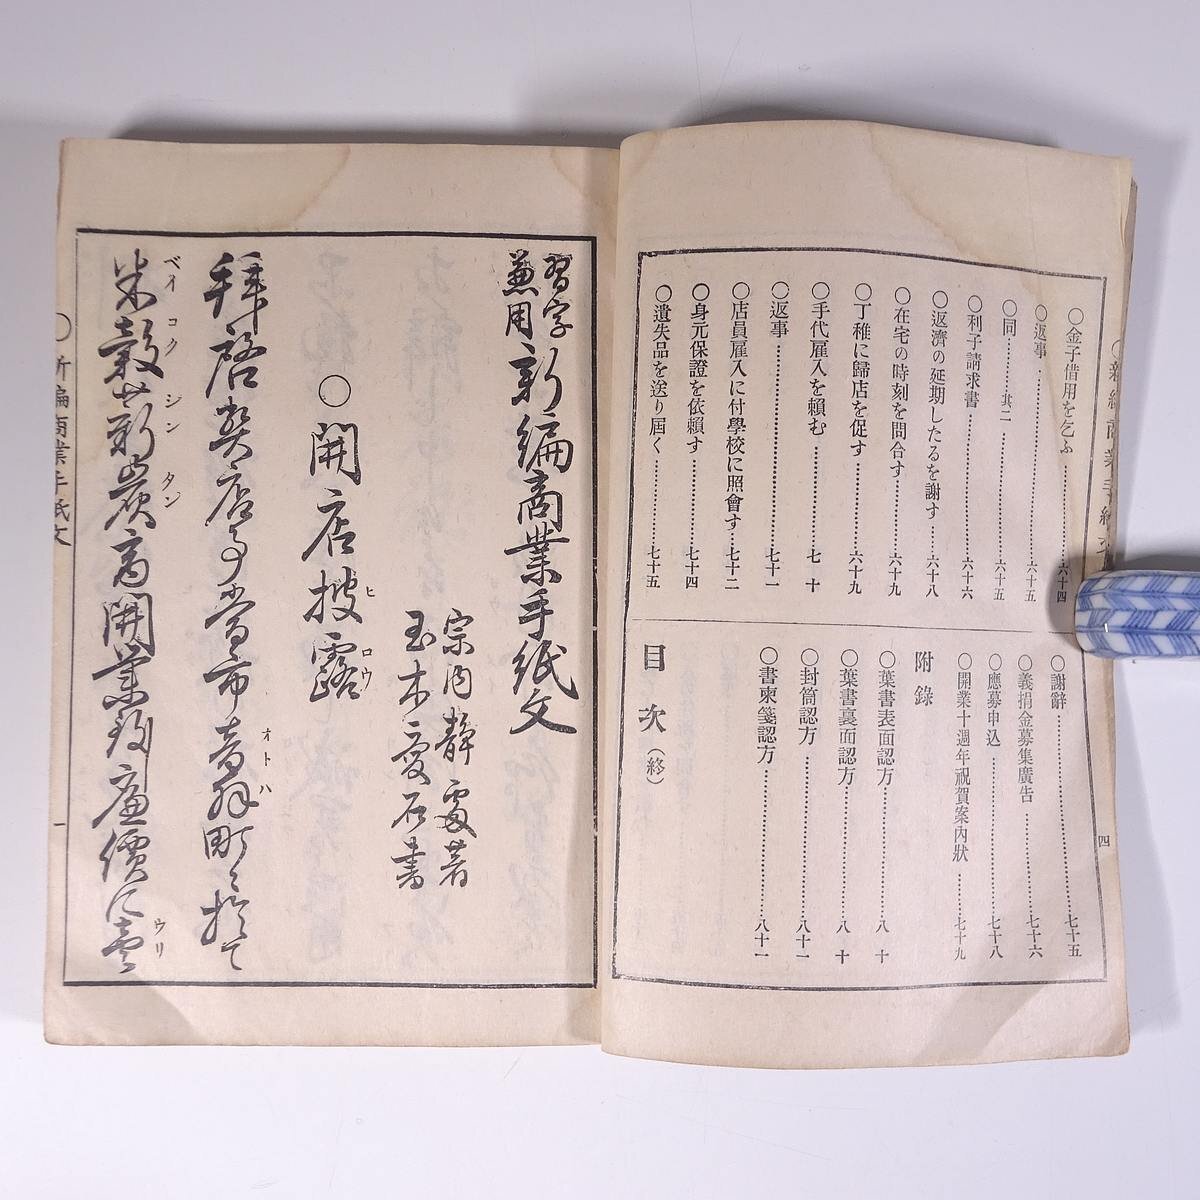 ○金子借用を乞ふ………六十四
○返事………六十五
○同………其二………六十五
○利子請求書………六十六
○返濟の延期したるを謝す…六十八
○在宅の時刻を問合す………六十九
○丁稚に歸店を促す………六十九
○手代雇入を賴む………七十
○返事………七十一
○店員雇入に付學校に照會す…七十二
○身元保證を依賴す………七十四
○遺失品を送り屆く………七十五
○謝辭………七十五
○義捐金募集廣告………七十六
○應募申込………七十八
○開業十週年祝賀案內狀………七十九
附錄
○葉書表面認方………八十
○葉書裏面認方………八十
○封筒認方………八十一
○書柬箋認方………八十一
目次(終)
四
習字兼用 新編商業手紙文
玉木愛石書
○開店披露
ヒロウ
拜啓弊店事當市音羽町に於て
オトハ
米穀並薪炭商開業致廉價に賣
ベイコク シンタン ウリ
○新編商業手紙文
一